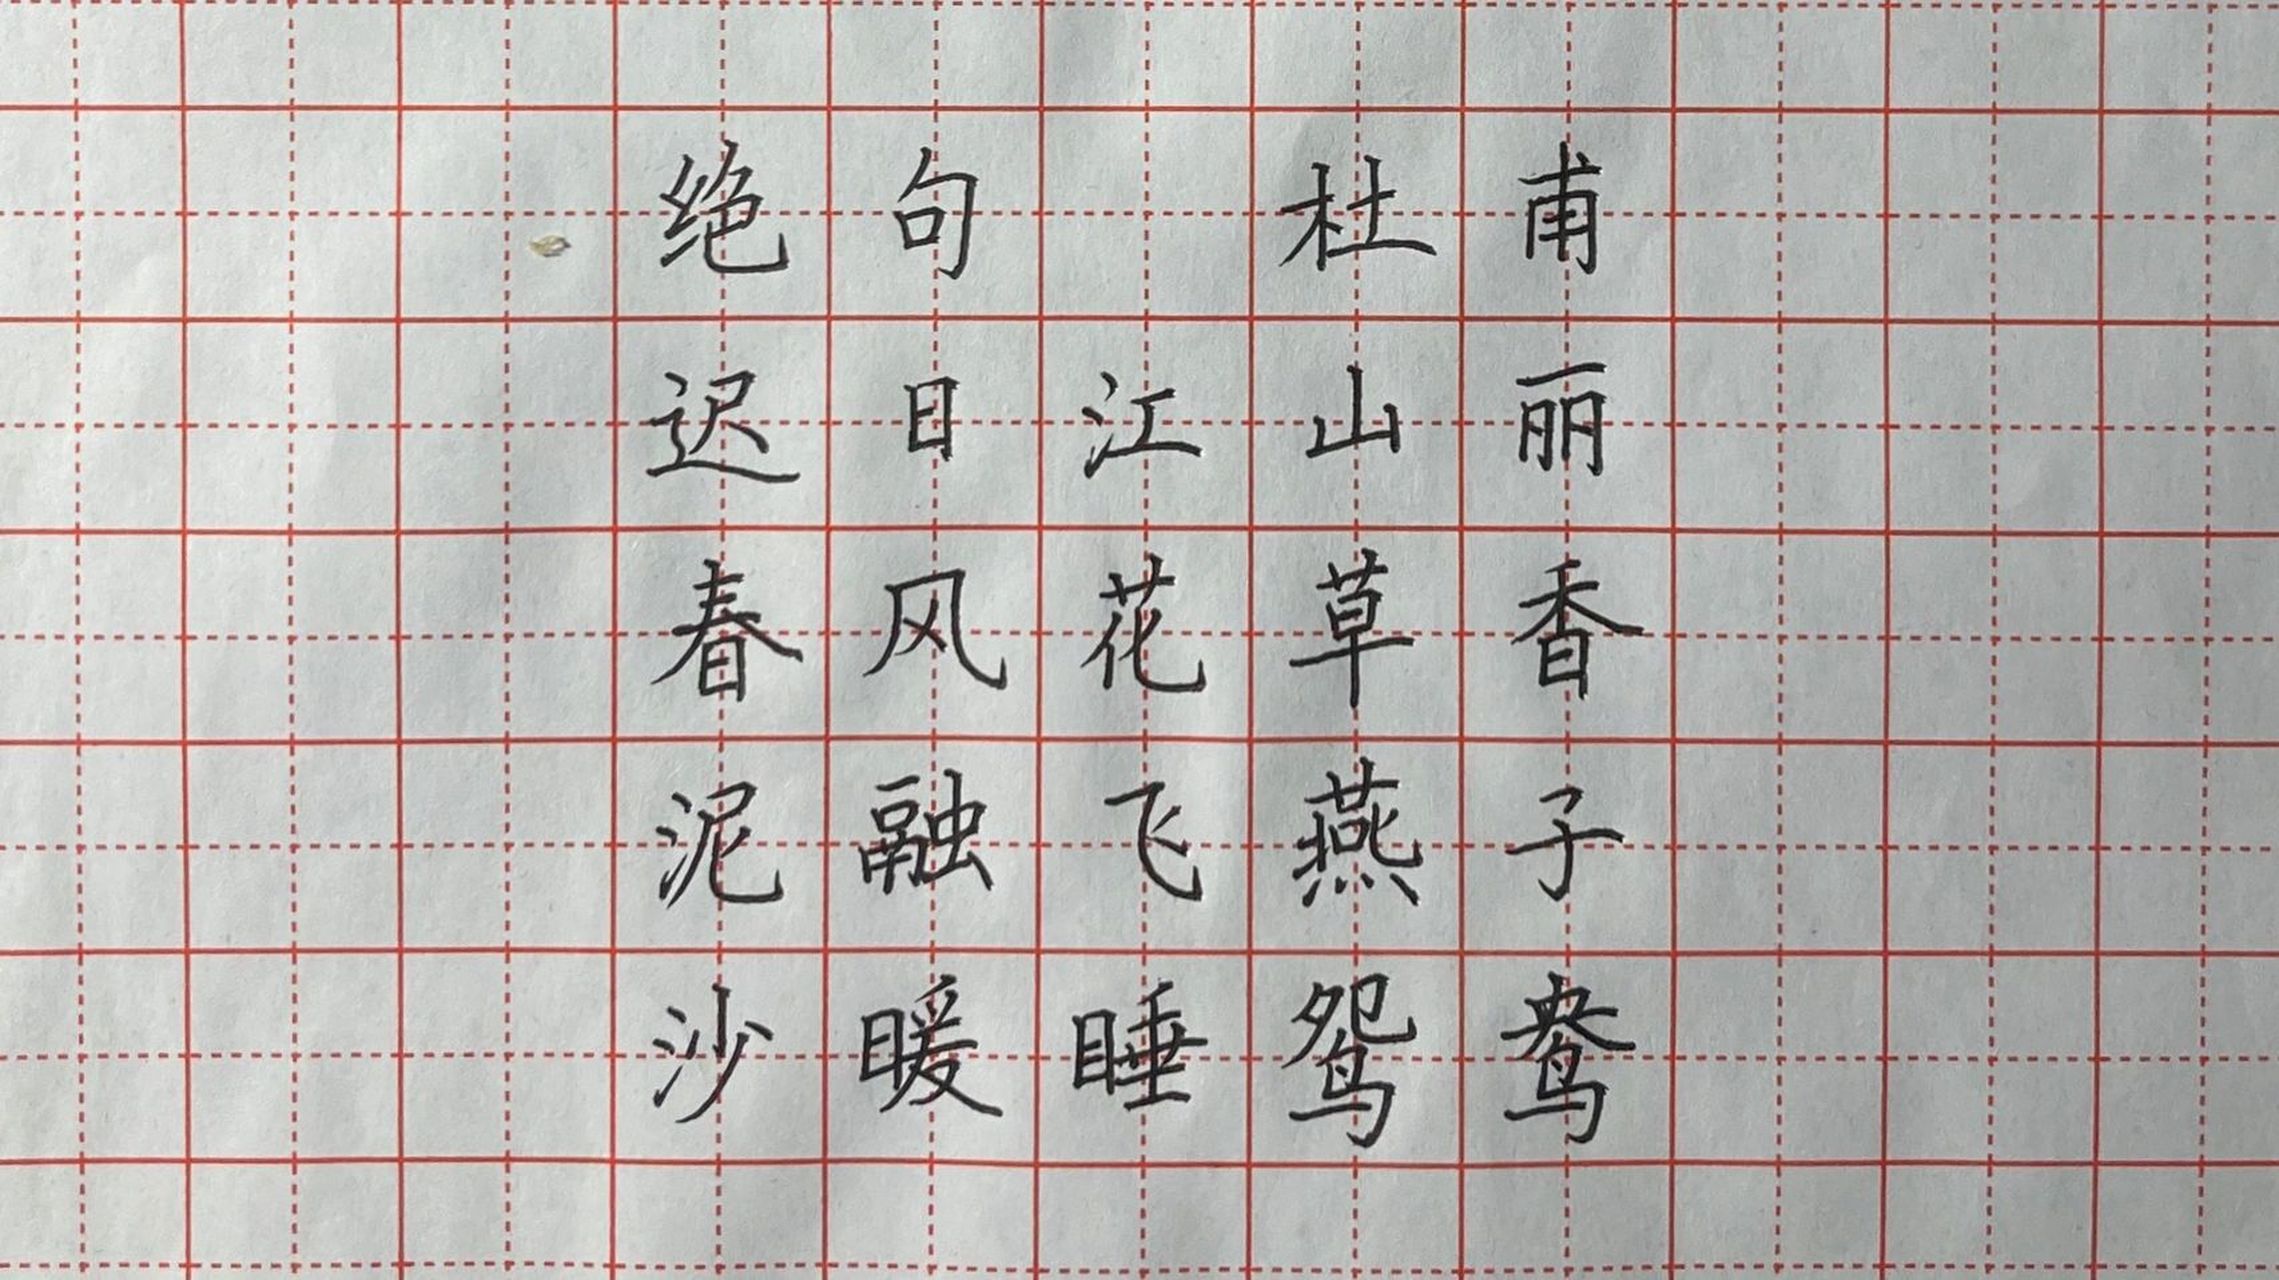 绝句 杜甫
迟日江山丽
春风花草香
泥融飞燕子
沙暖睡鸳鸯